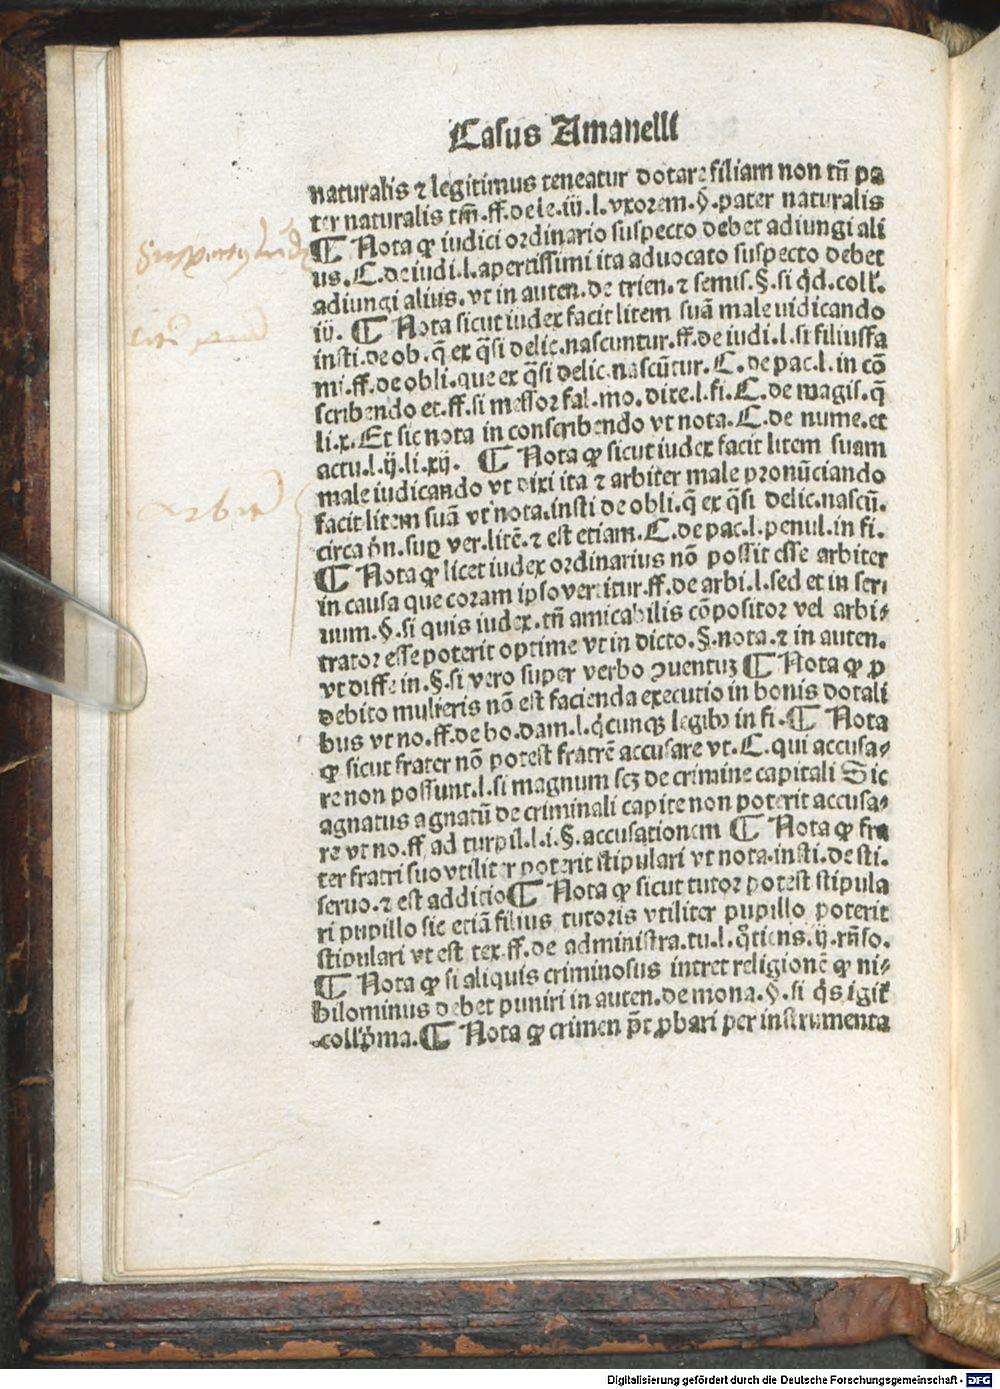 Casus Amanelli
naturalis ⁊ legitimus teneatur dotare filiam non tm̄ pa
ter naturalis tm̄.ff.de le.iij.l.vxorem.§.pater naturalis
¶ Nota ꝙ iudici ordinario suspecto debet adiungi ali
us.C.de iudi.l.apertissimi ita aduocato suspecto debet
adiungi alius.vt in auten.de trien.⁊ semis.§.si qd.coll.
iij. ¶ Nota sicut iudex facit litem suā male iudicando
insti.de ob.q̄ ex q̄si delic.nascuntur.ff.de iudi.l.si filiusfa
mi.ff.de obli.que ex q̄si delic.nascūtur.C.de pac.l.in cō
scribendo et.ff.si mensor fal.mo.dixe.l.fi.C.de magis.q̄
li.x.Et sic nota in conscribendo vt nota.C.de nume.et
actu.l.ij.li.xij. ¶ Nota ꝙ sicut iudex facit litem suam
male iudicando vt dixi ita ⁊ arbiter male pronūciando
facit litem suā vt nota.insti de obli.q̄ ex q̄si delic.nascū.
circa pn̄.suꝑ ver.litē.⁊ est etiam.C.de pac.l.penul.in fi.
¶ Nota ꝙ licet iudex ordinarius nō possit esse arbiter
in causa que coram ipso vertitur.ff.de arbi.l.sed et in ser⸗
uum.§.si quis iudex.tn̄ amicabilis cōpositor vel arbi⸗
trator esse poterit optime vt in dicto.§.nota.⁊ in auten.
vt differ in.§.si vero super verbo ꝯuentuꝫ ¶ Nota ꝙ ꝓ
debito mulieris nō est facienda executio in bonis dotali
bus vt no.ff.de bo.dam.l.qcunqꝫ legibꝰ in fi.¶ Nota
ꝙ sicut frater nō potest fratrē accusare vt.C.qui accusa⸗
re non possunt.l.si magnum scꝫ de crimine capitali Sic
agnatus agnatū de criminali capite non poterit accusa⸗
re vt no.ff ad turpil.l.i.§.accusationem ¶ Nota ꝙ fra
ter fratri suo vtiliter poterit stipulari vt nota.insti.de sti.
seruo.⁊ est additio¶ Nota ꝙ sicut tutor potest stipula
ri pupillo sic etiā filius tutoris vtiliter pupillo poterit
stipulari vt est tex.ff.de administra.tu.l.qtiens.ij.rn̄so.
¶ Nota ꝙ si aliquis criminosus intret religionē ꝙ ni⸗
hilominus debet puniri in auten.de mona.§.si qs igit
coll.pma.¶ Nota ꝙ crimen pt ꝓbari per instrumenta
Digitalisierung gefördert durch die Deutsche Forschungsgemeinschaft - DFG